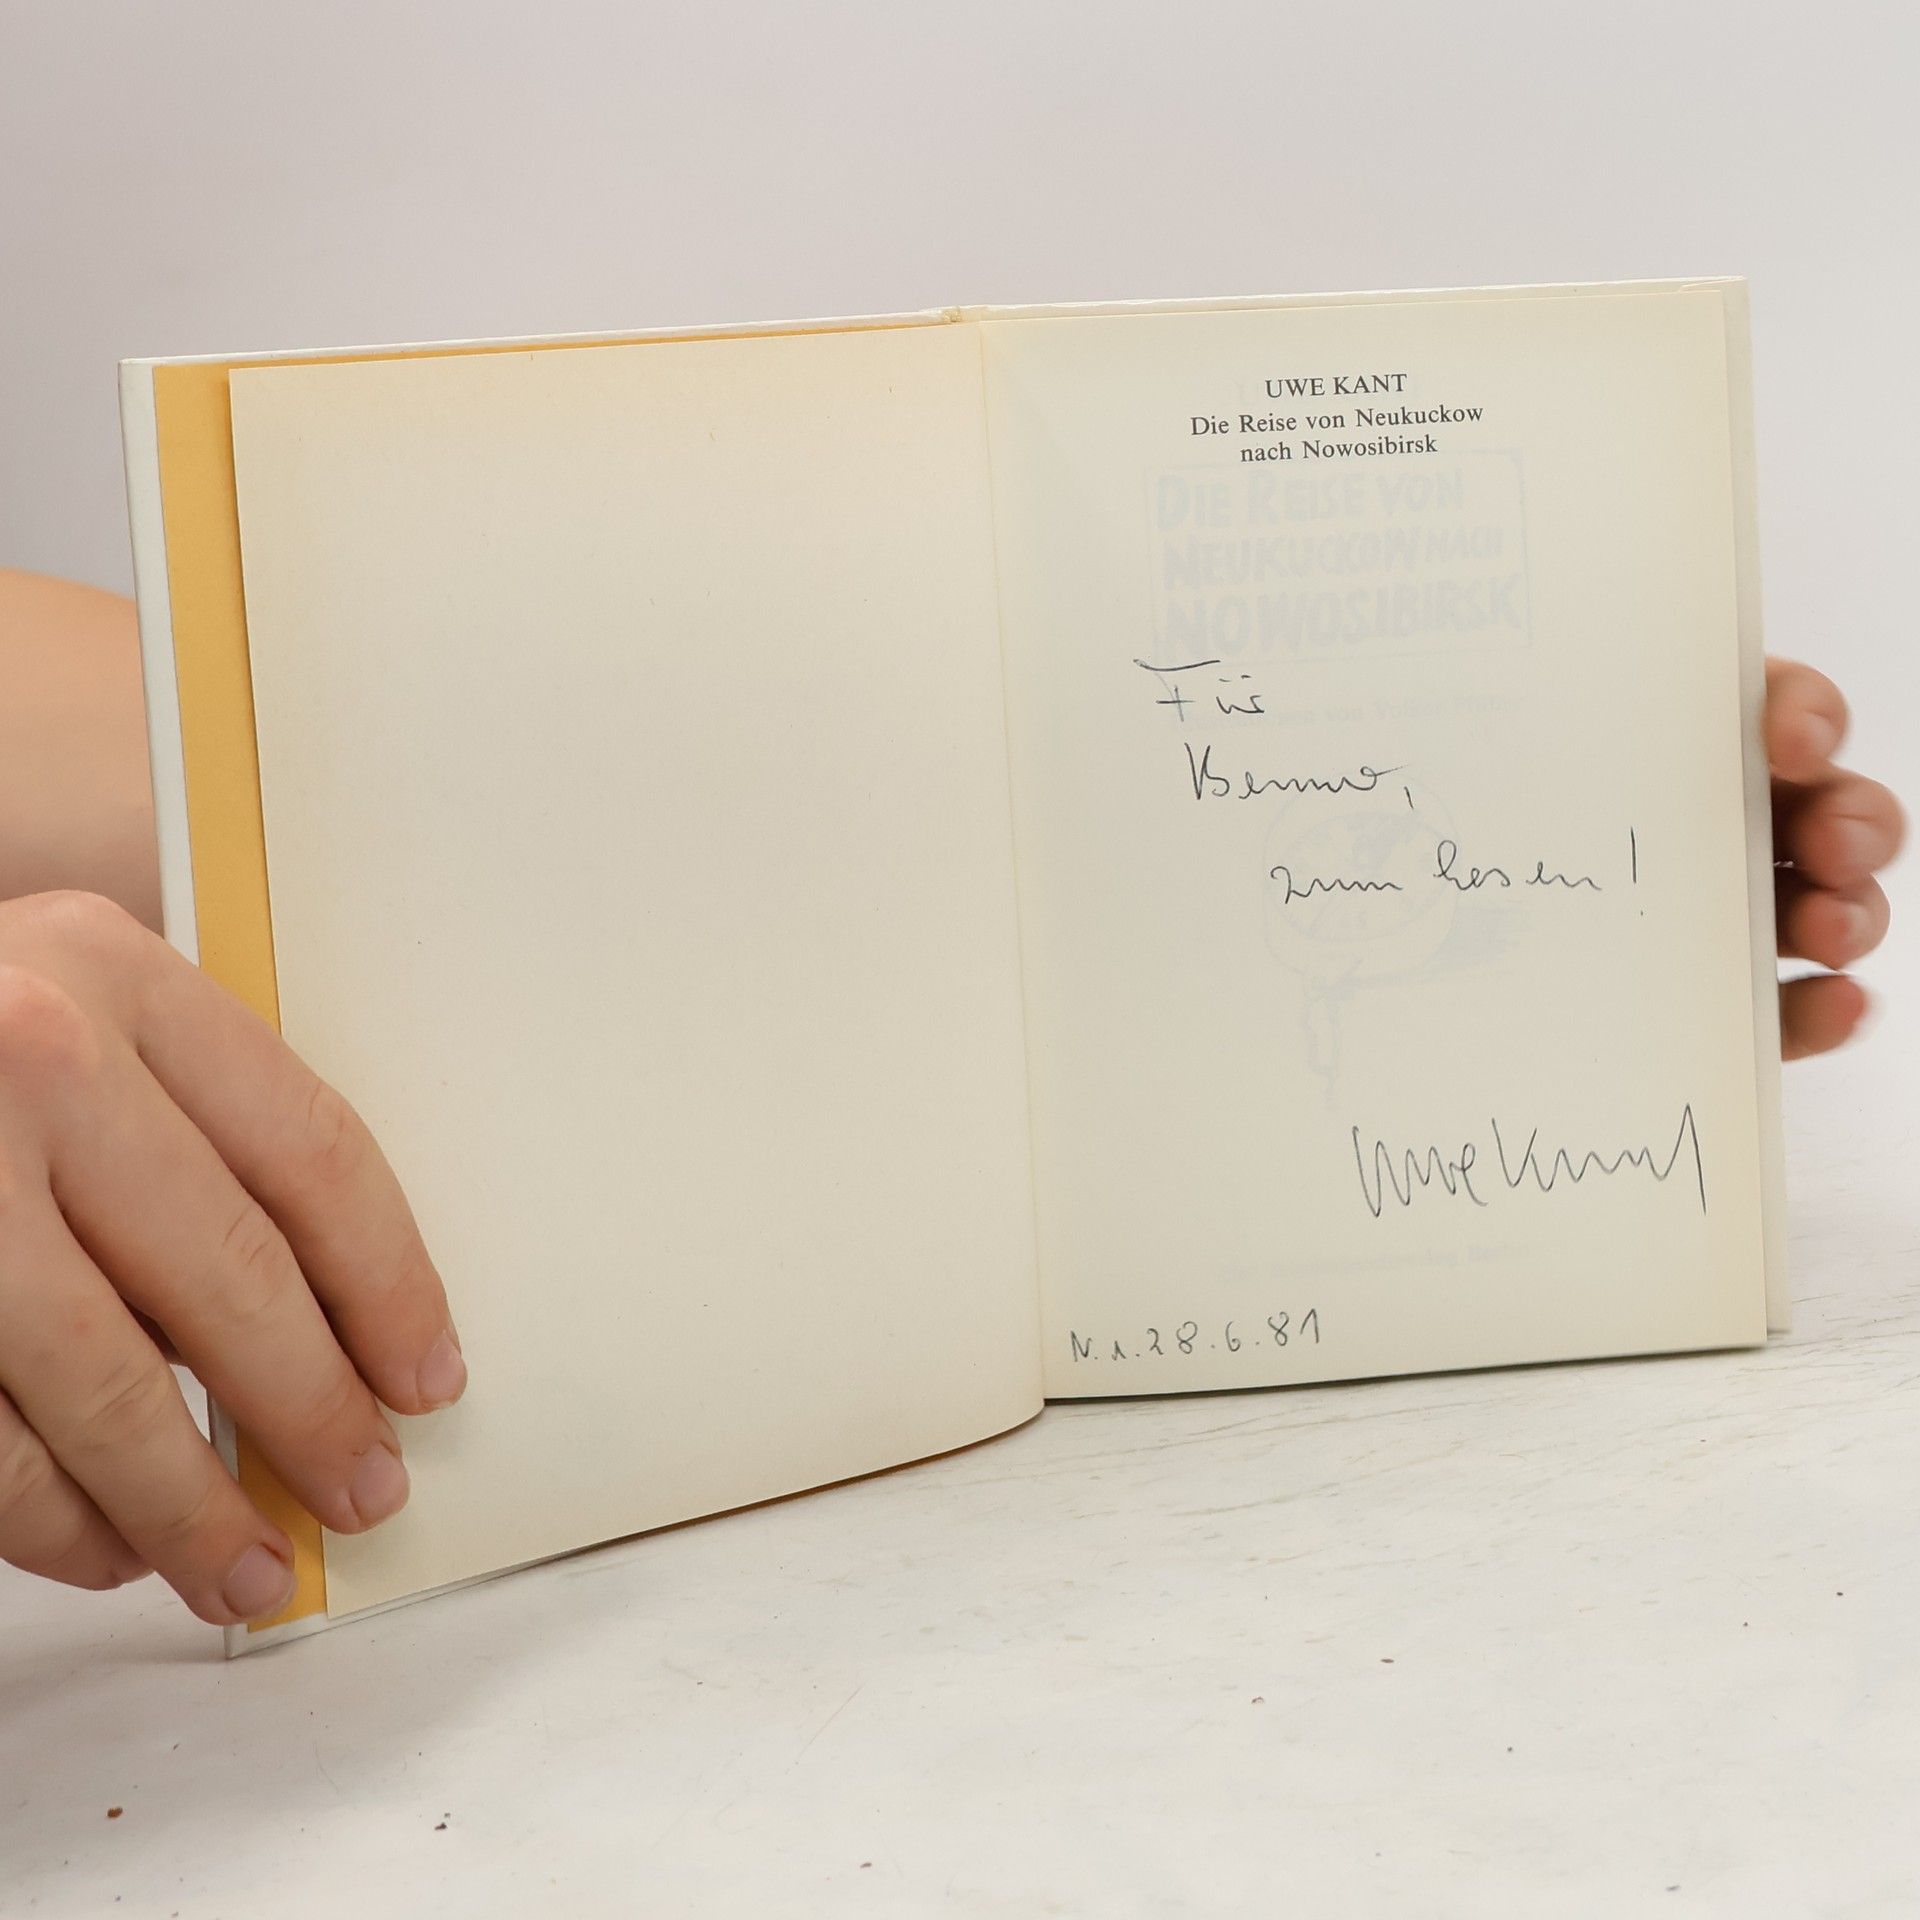 UWE KANT
Die Reise von Neukuckow
nach Nowosibirsk
DIE REISE VON
NEUKUCKOW NACH
NOWOSIBIRSK
Für
von Volker
Benno,
zum Lesen!
Uwe Kant
N. 1. 28.6.81